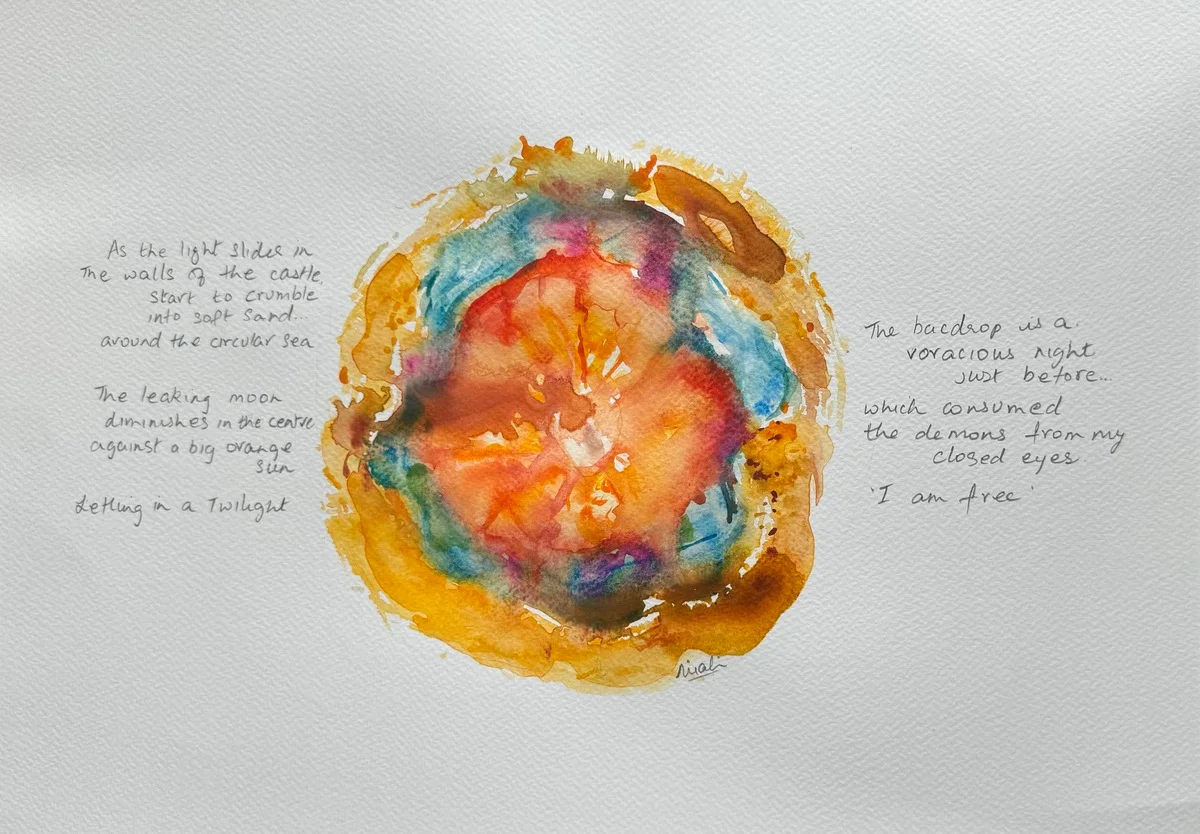 As the light slides in
The walls of the castle
start to crumble
into soft sand...
around the circular sea
The leaking moon
diminishes in the centre
against a big orange
sun
Letting in a Twilight
The bacdrop is a
voracious night
just before...
which consumed
the demons from my
closed eyes
'I am free'